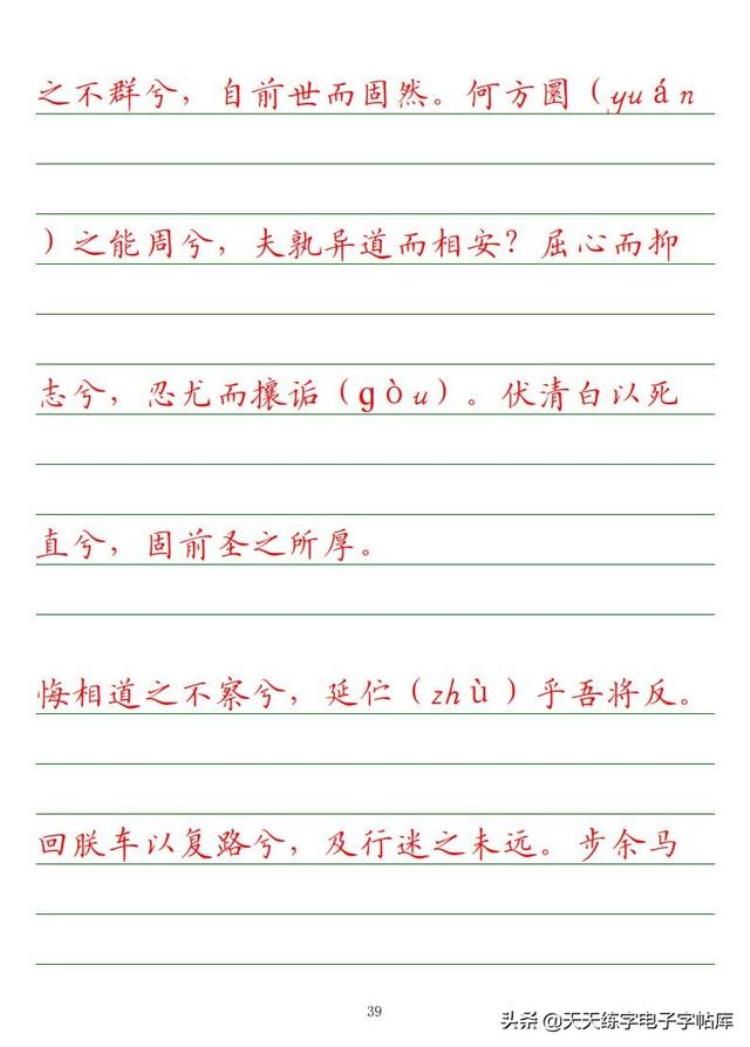 之不群兮，自前世而固然。何方圜（yuán
）之能周兮，夫孰异道而相安？屈心而抑
志兮，忍尤而攘诟（gòu）。伏清白以死
直兮，固前圣之所厚。
悔相道之不察兮，延伫（zhù）乎吾将反。
回朕车以复路兮，及行迷之未远。步余马
39
头条 @天天练字电子字帖库